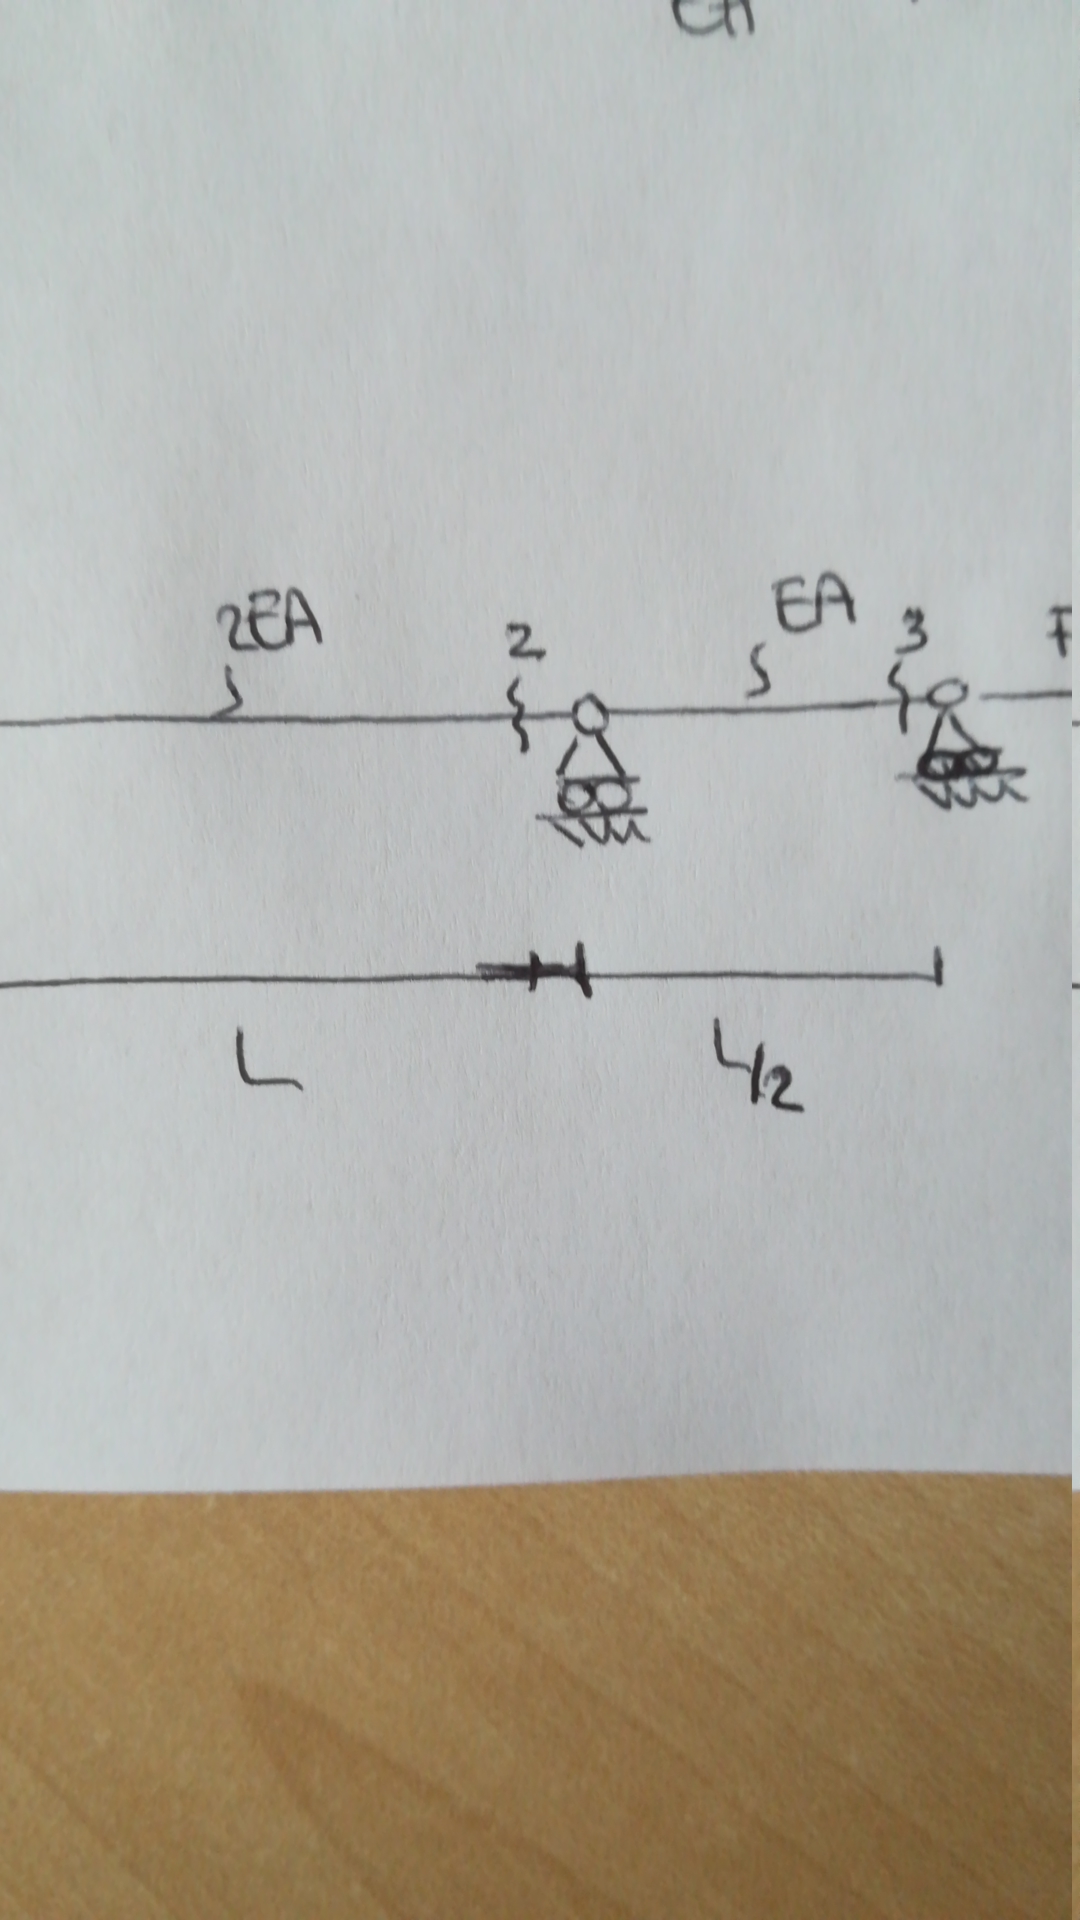 EA
2EA
2
EA
3
F
L
L/2